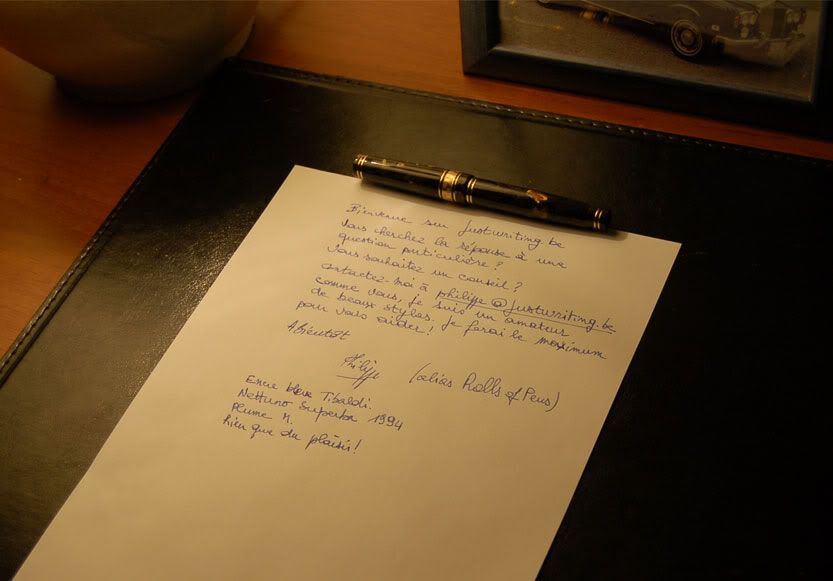 Bienvenue sur Justwriting.be
Vous cherchez la réponse à une
question particulière ?
Vous souhaitez un conseil ?
Contactez-moi à philippe@justwriting.be
comme vous, je suis un amateur
de beaux stylos. Je ferai le maximum
pour vous aider !
A bientôt
Philippe (alias Rolls of Pens)
Encre bleue Tibaldi.
Nettuno Superba 1994
Plume M.
Rien que du plaisir !